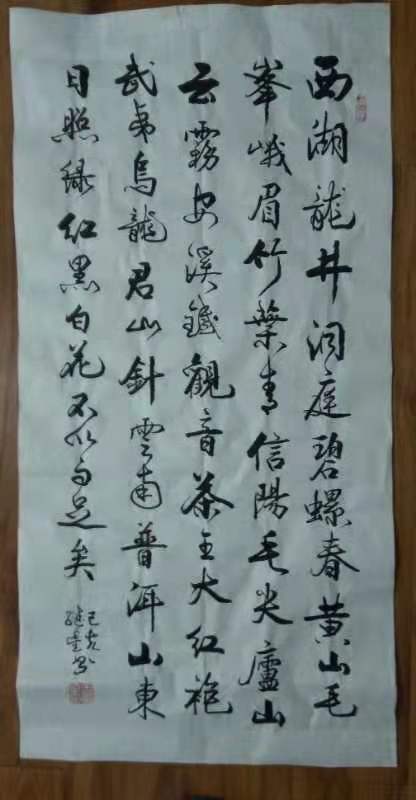 西湖龍井洞庭碧螺春黄山毛
峯峨眉竹葉青信陽毛尖廬山
云霧安溪鐵觀音茶王大红袍
武夷烏龍君山針雲南普洱山東
日照緑红黑白花不以为足矣
己亥